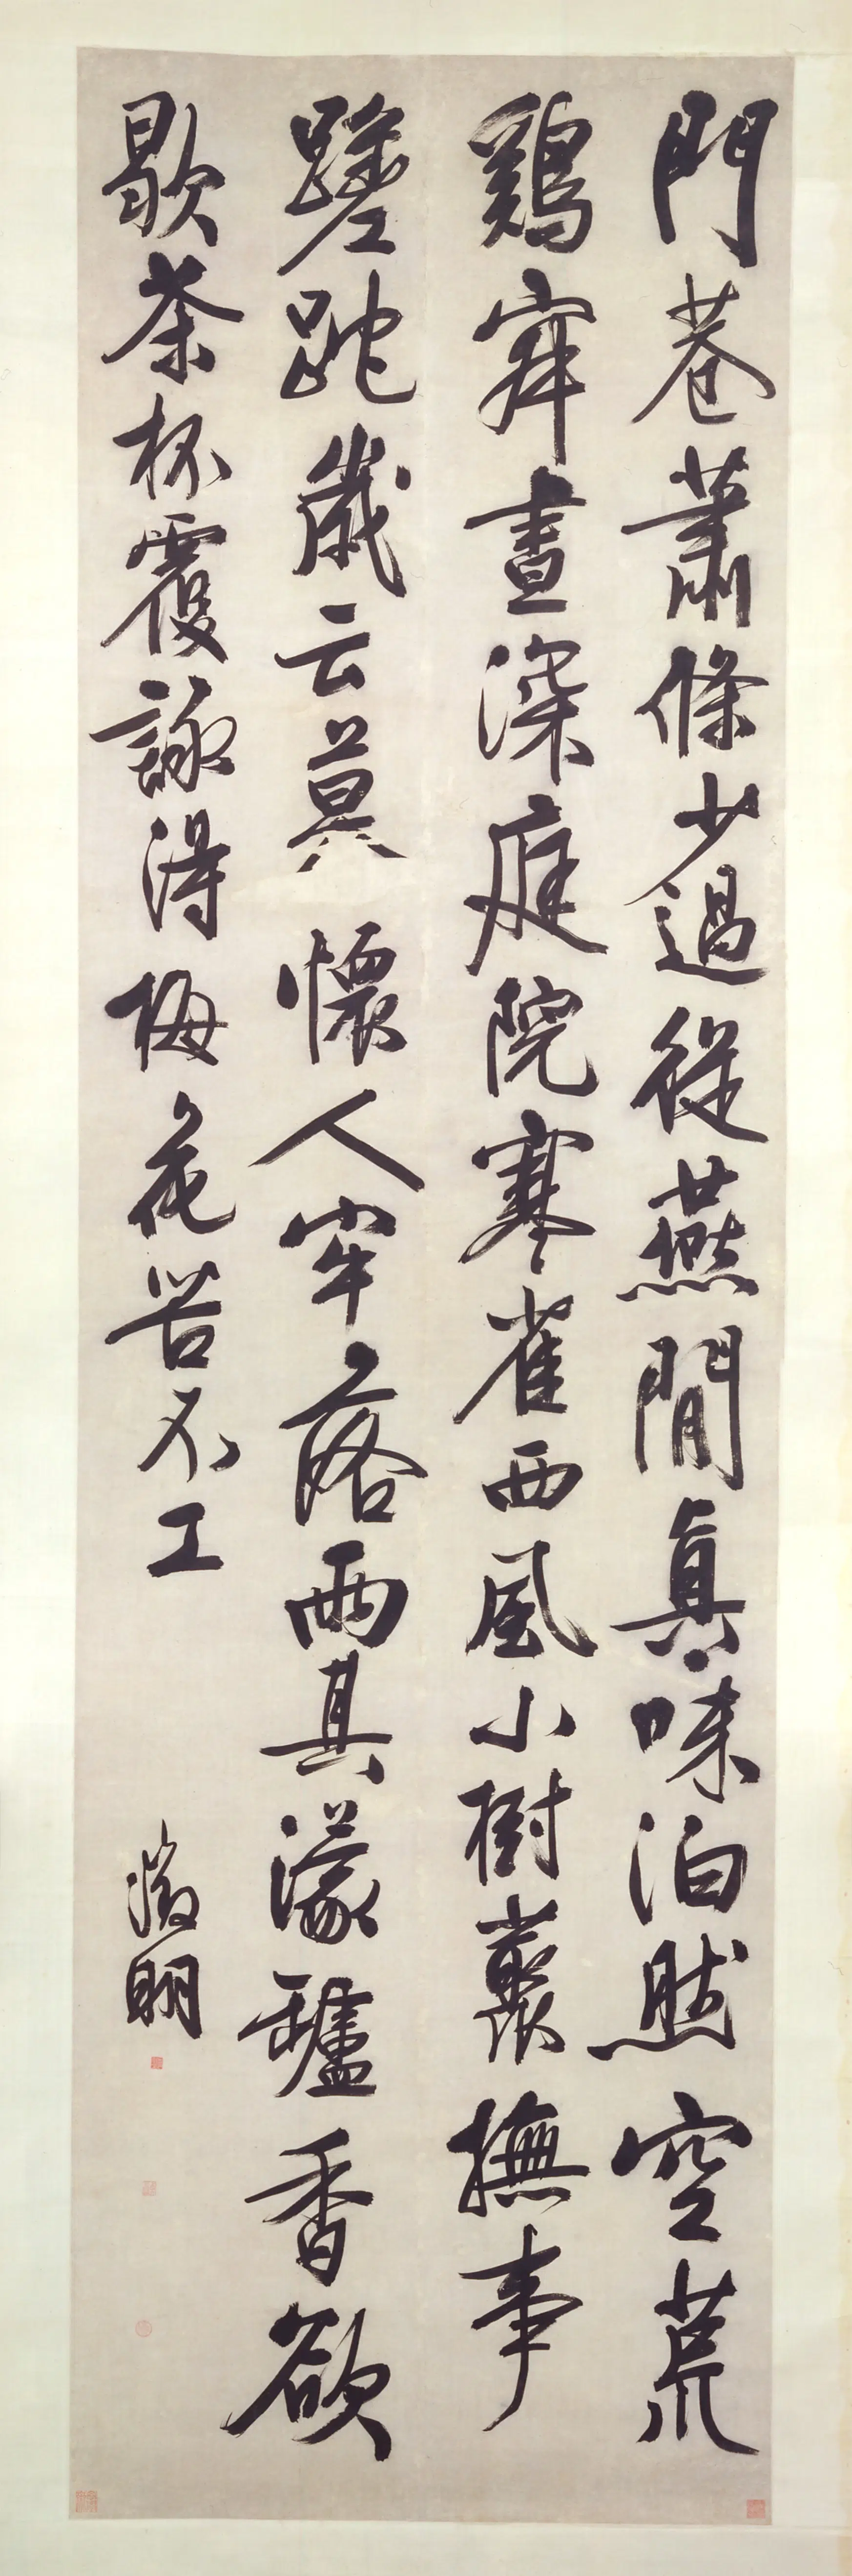 門巷蕭條少過從燕閒真味泊然空荒
鷄晝深庭院寒雀西風小樹叢撫事
蹉跎歲云莫懷人牢落雨其濛罏香欲
歇茶杯覆詠得梅花苦不工
徵明